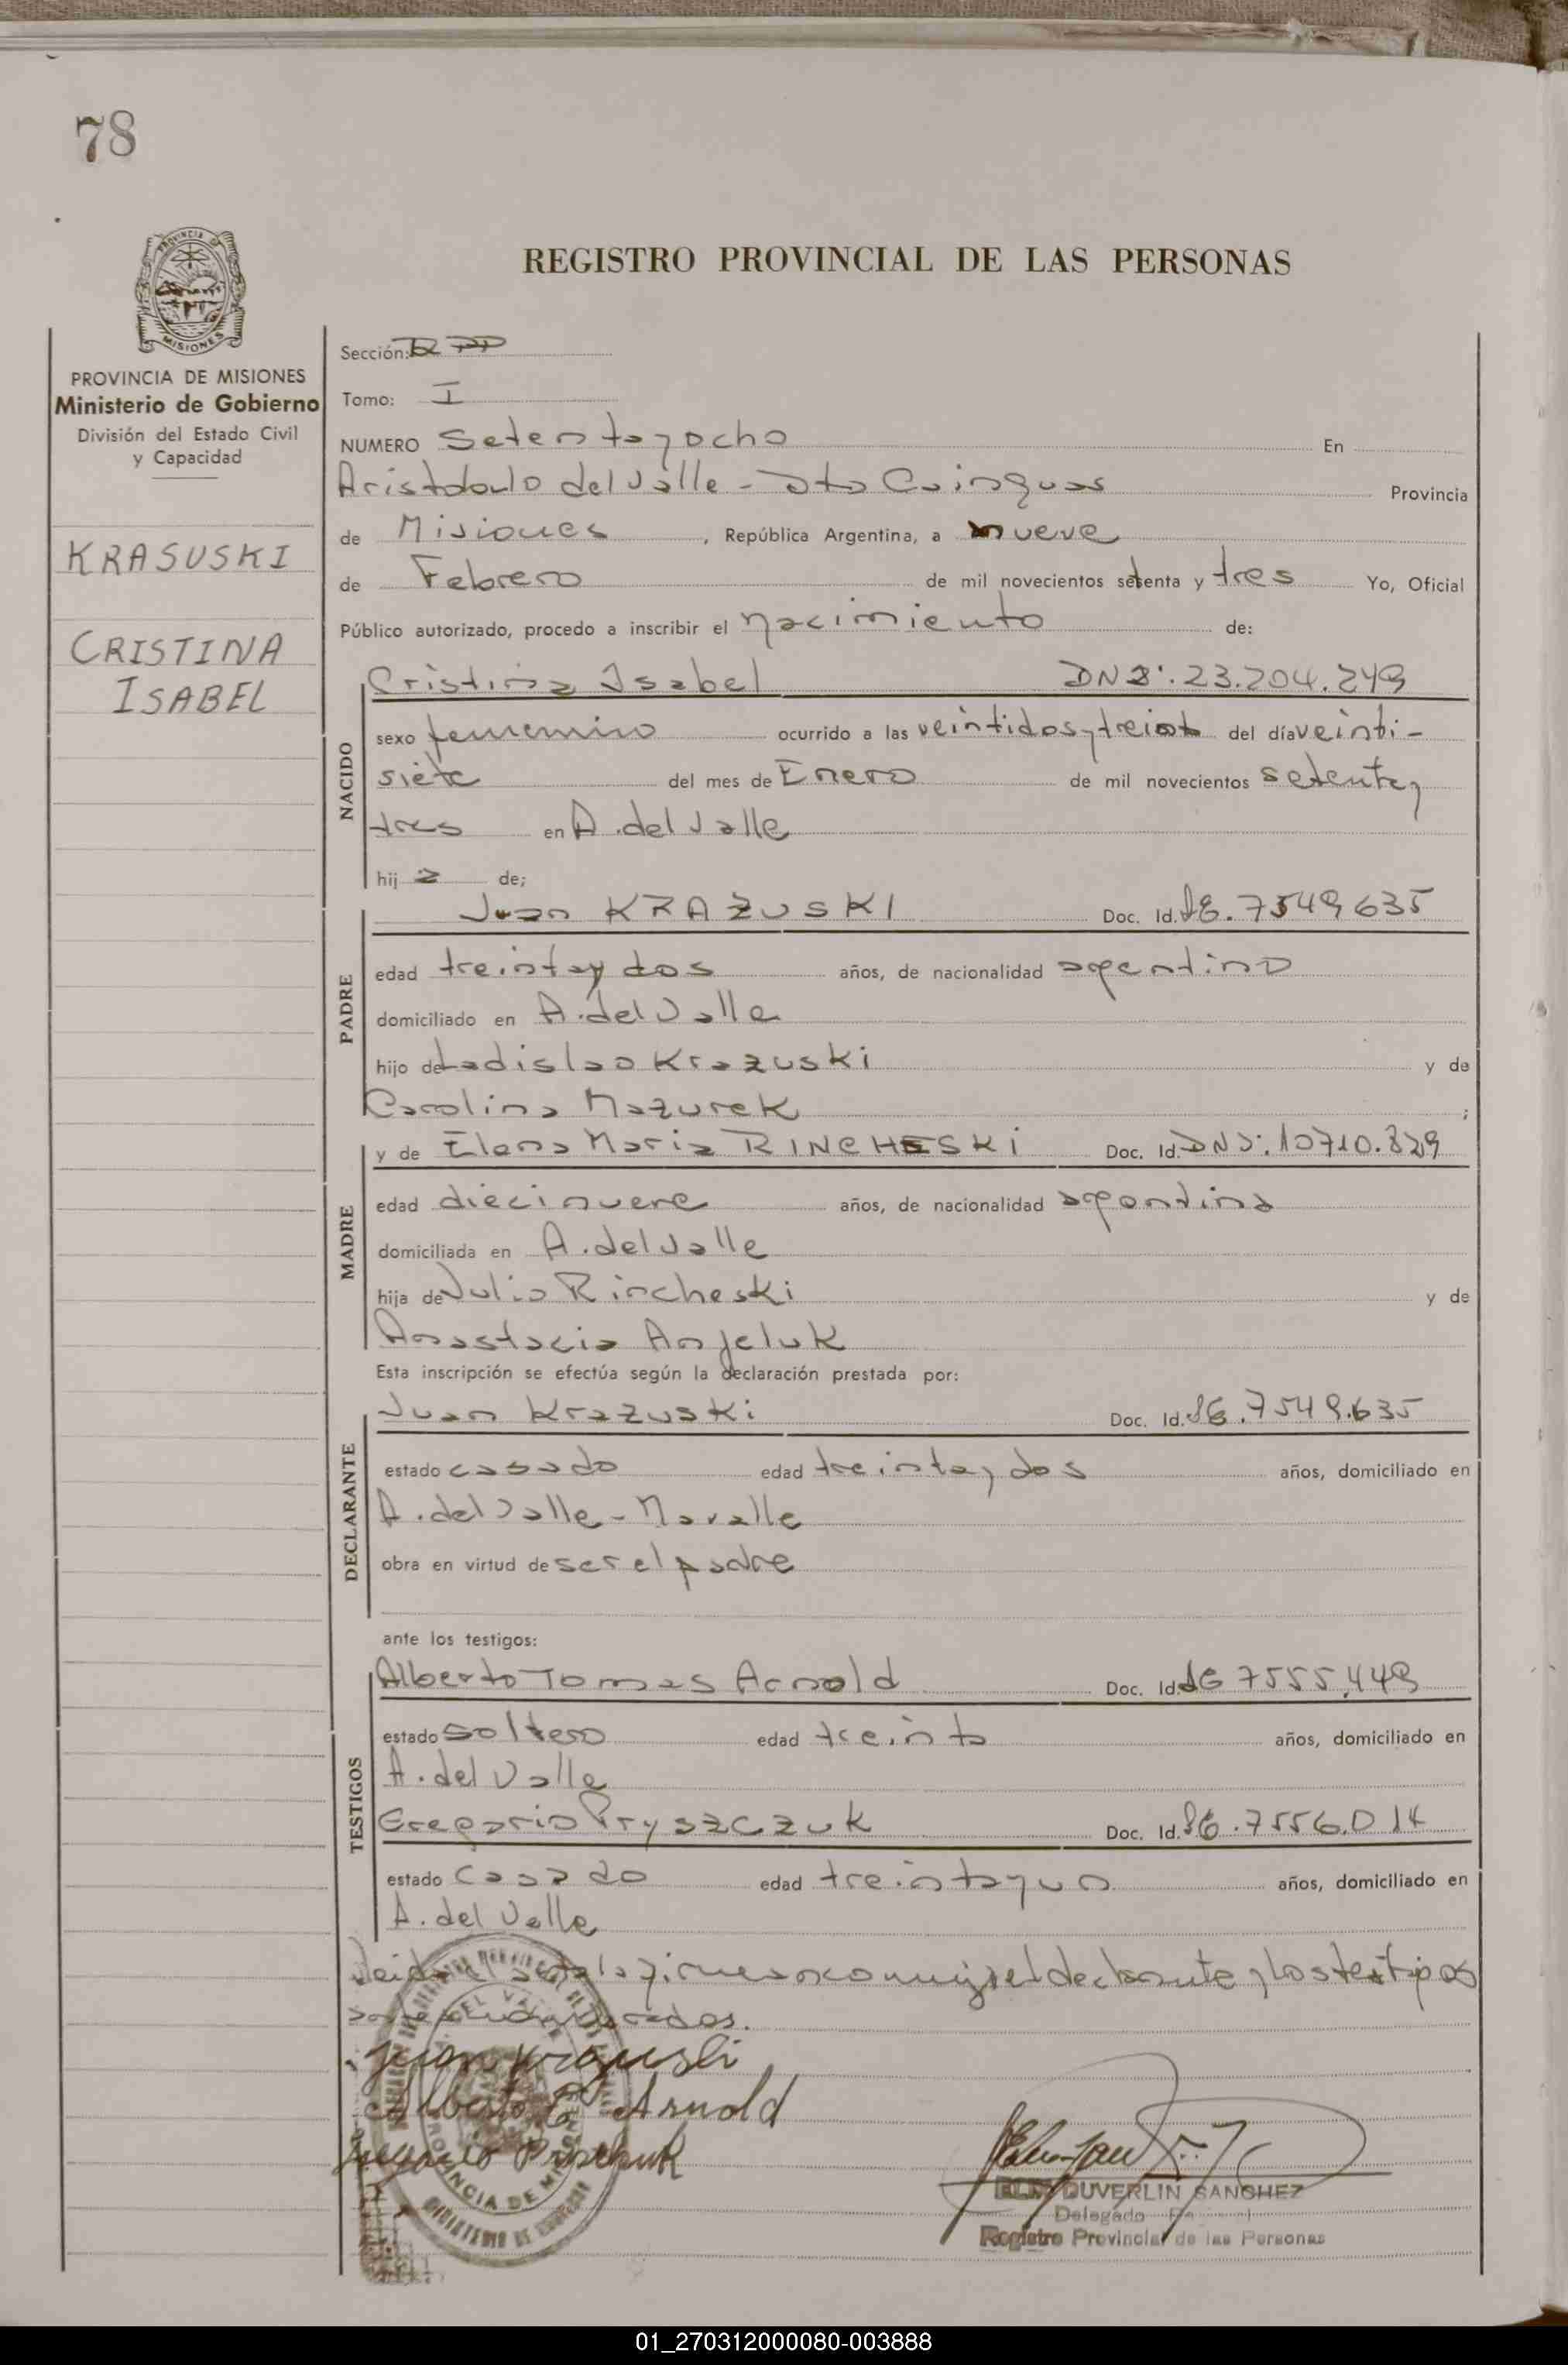 78
REGISTRO PROVINCIAL DE LAS PERSONAS
PROVINCIA DE
MISIONES
PROVINCIA DE MISIONES
Ministerio de Gobierno
División del Estado Civil
y Capacidad
KRASUSKI
CRISTINA
ISABEL
Sección:
Tomo: I
NUMERO Setentayocho En
Aristobulo del Valle - Dto Cainguas Provincia
de Misiones, República Argentina, a nueve
de Febrero de mil novecientos setenta y tres Yo, Oficial
Público autorizado, procedo a inscribir el nacimiento de:
NACIDO
Cristina Isabel DNI: 23.204.249
sexo femenino ocurrido a las veintidosytreinta del día veinti-
siete del mes de Enero de mil novecientos setentay
tres en A. del Valle
hija de;
PADRE
Juan KRAZUSKI Doc. Id. LE. 7549635
edad treintay dos años, de nacionalidad argentino
domiciliado en A. del Valle
hijo de Ladislao Krazuski y de
Carolina Mazurek ;
MADRE
y de Elena Maria RINCHESKI Doc. Id. DNI: 10710.829
edad diecinueve años, de nacionalidad argentina
domiciliada en A. del Valle
hija de Julio Rincheski y de
Anastacia Anjeluk
Esta inscripción se efectúa según la declaración prestada por:
DECLARANTE
Juan Krazuski Doc. Id. LE. 7549.635
estado casado edad treintay dos años, domiciliado en
A. del Valle - Mavalle
obra en virtud de ser el padre
ante los testigos:
TESTIGOS
Alberto Tomas Arnold Doc. Id. LE 7555.449
estado soltero edad treinta años, domiciliado en
A. del Valle
Gregorio Pryszczuk Doc. Id. LE. 7556.014
estado casado edad treintayun años, domiciliado en
A. del Valle
Leida el acta la firman conmigo el declarante y los testigos
Juan
Alberto T. Arnold
DUVERLIN SANCHEZ
Delegado
Registro Provincial de las Personas
01_270312000080-003888